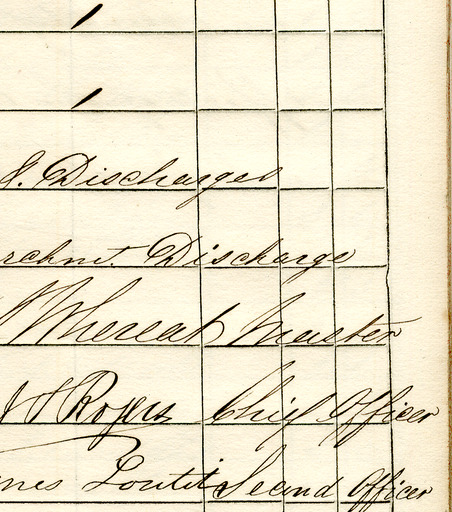 S. Discharges
rchnt. Discharge
Whereat Master
Rogers Chief Officer
mes Loutit Second Officer